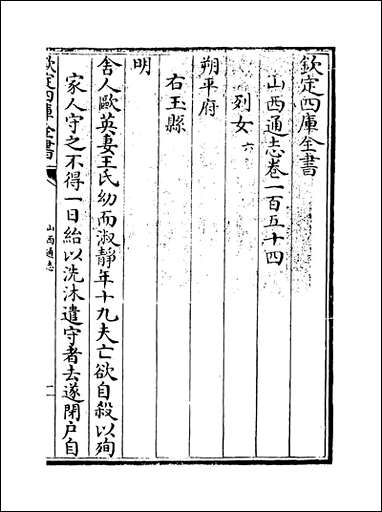 欽定四庫全書
山西通志卷一百五十四
列女六
朔平府
右玉縣
明
舍人歐英妻王氏幼而淑靜年十九夫亡欲自殺以殉
家人守之不得一日紿以洗沐遣守者去遂閉戶自
欽定四庫全書
山西通志